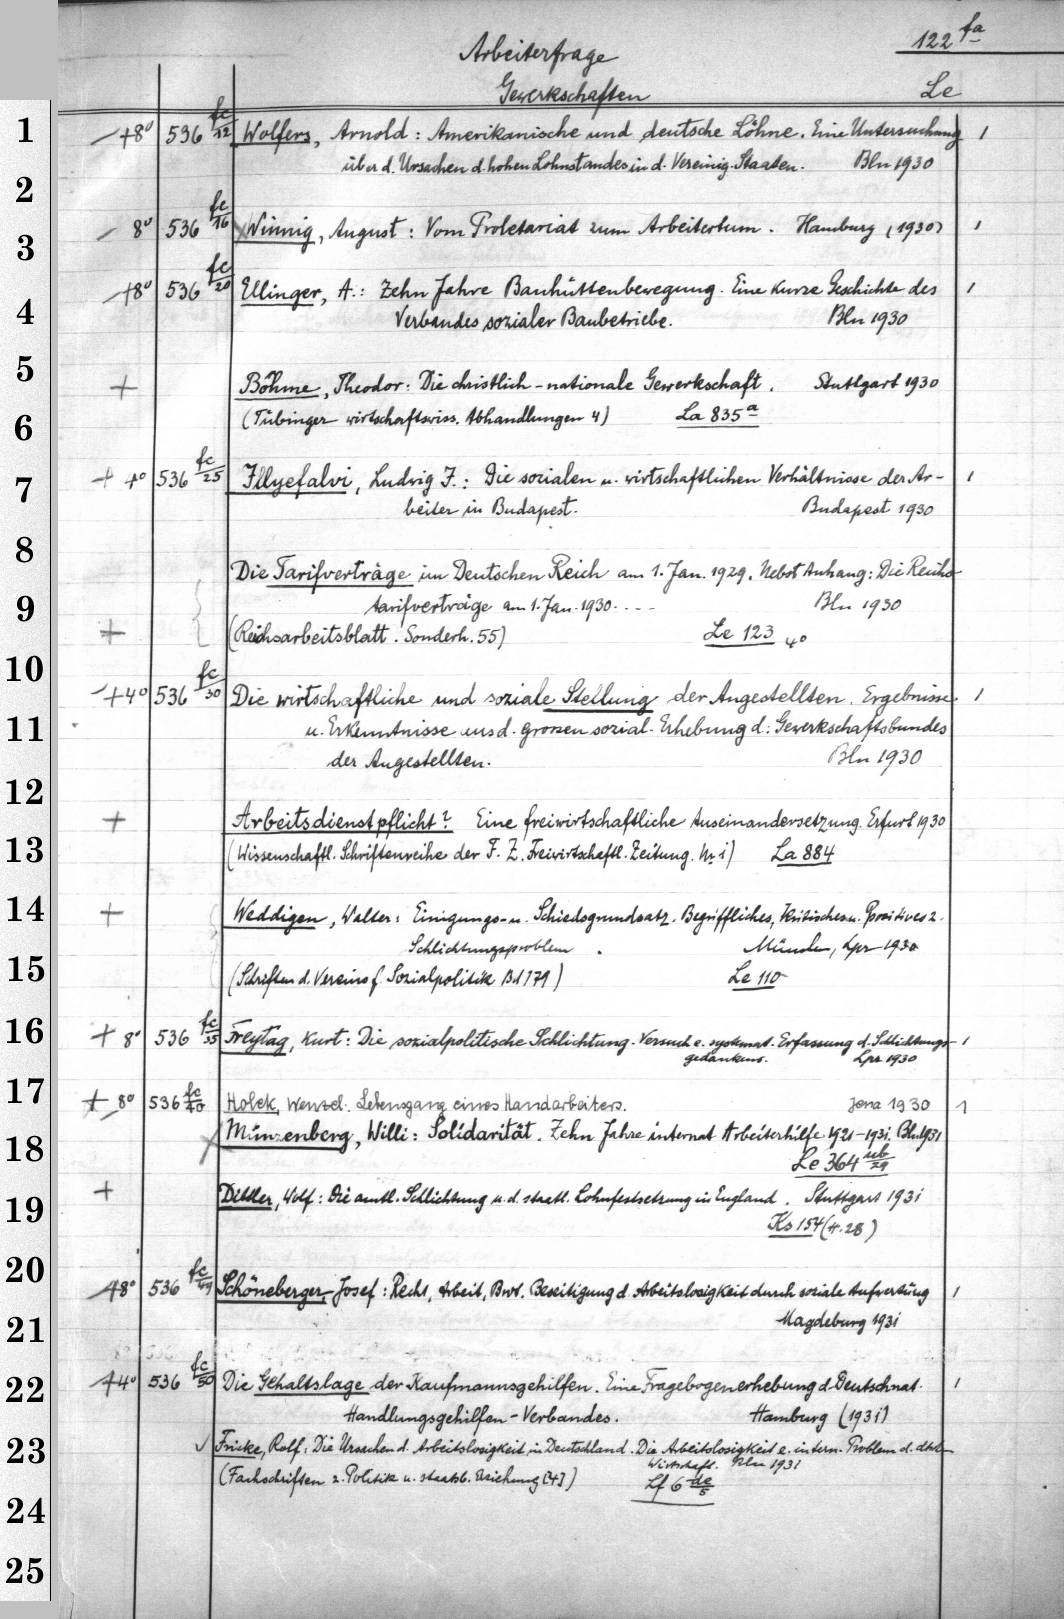 Arbeiterfrage
122 fa
Gewerkschaften
Le
1
+8° 536 fc/12 Wolfers, Arnold: Amerikanische und deutsche Löhne. Eine Untersuchung 1
über d. Ursachen d. hohen Lohnstandes in d. Vereinig. Staaten. Bln 1930
2
8° 536 fc/16 Winnig, August: Vom Proletariat zum Arbeitertum. Hamburg (1930) 1
3
+8° 536 fc/20 Ellinger, A.: Zehn Jahre Bauhüttenbewegung. Eine kurze Geschichte des 1
4
Verbandes sozialer Baubetriebe. Bln 1930
5
+ Böhme, Theodor: Die christlich-nationale Gewerkschaft. Stuttgart 1930
6
(Tübinger wirtschaftswiss. Abhandlungen 4) La 835 a
7
+ 4° 536 fc/25 Illyefalvi, Ludwig I.: Die sozialen u. wirtschaftlichen Verhältnisse der Ar- 1
beiter in Budapest. Budapest 1930
8
Die Tarifverträge im Deutschen Reich am 1. Jan. 1929. Nebst Anhang: Die Reichs-
9
tarifverträge am 1. Jan. 1930. - - - Bln 1930
+ (Reichsarbeitsblatt. Sonderh. 55) Le 123 4°
10
+4° 536 fc/30 Die wirtschaftliche und soziale Stellung der Angestellten. Ergebnisse 1
11
u. Erkenntnisse aus d. grossen sozial. Erhebung d. Gewerkschaftsbundes
der Angestellten. Bln 1930
12
+ Arbeitsdienstpflicht? Eine freiwirtschaftliche Auseinandersetzung. Erfurt 1930
13
(Wissenschaftl. Schriftenreihe der F. Z. Freiwirtschaftl. Zeitung. Nr 1) La 884
14
+ Weddigen, Walter: Einigungs- u. Schiedsgrundsatz. Begriffliches, Kritisches u. Positives z.
Schlichtungsproblem. München, Lpz 1930
15
(Schriften d. Vereins f. Sozialpolitik Bd 179) Le 110
16
+ 8° 536 fc/35 Freytag, Kurt: Die sozialpolitische Schlichtung. Versuch e. systemat. Erfassung d. Schlichtungs- 1
gedankens. Lpz 1930
17
+ 8° 536 fc/40 Holek, Wenzel: Lebensgang eines Handarbeiters. Jena 1930 1
18
Münzenberg, Willi: Solidarität. Zehn Jahre internat Arbeiterhilfe 1921-1931. Bln 1931
Le 364 ub/29
19
+ Dittler, Wolf: Die amtl. Schlichtung u. d. staatl. Lohnfestsetzung in England. Stuttgart 1931
Ks 154 (H. 28)
20
+8° 536 fc/49 Schöneberger, Josef: Recht, Arbeit, Brot. Beseitigung d. Arbeitslosigkeit durch soziale Aufwertung 1
21
Magdeburg 1931
22
+4° 536 fc/50 Die Gehaltslage der Kaufmannsgehilfen. Eine Fragebogenerhebung d. Deutschnat. 1
Handlungsgehilfen-Verbandes. Hamburg (1931)
23
Fricke, Rolf: Die Ursachen d. Arbeitslosigkeit in Deutschland. Die Arbeitslosigkeit e. intern. Problem d. dtsch
Wirtschaft. Bln 1931
(Fachschriften z. Politik u. staatsb. Erziehung [4]) Lf 6 de/5
24
25